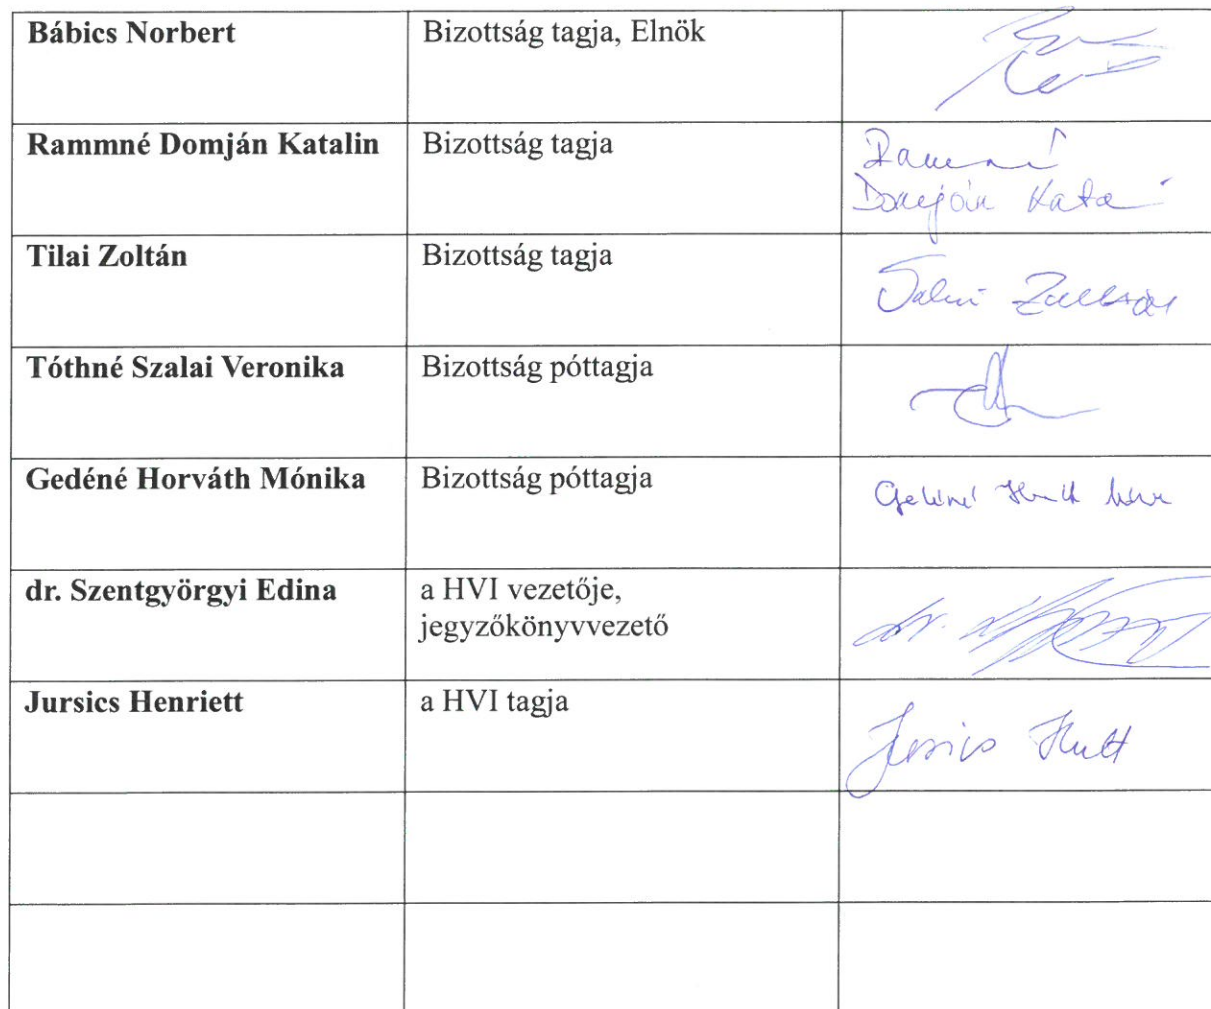 Bábics Norbert
Bizottság tagja, Elnök
Rammné Domján Katalin
Bizottság tagja
Domján Kata
Tilai Zoltán
Bizottság tagja
Tóthné Szalai Veronika
Bizottság póttagja
Gedéné Horváth Mónika
Bizottság póttagja
dr. Szentgyörgyi Edina
a HVI vezetője,
jegyzőkönyvvezető
dr.
Jursics Henriett
a HVI tagja